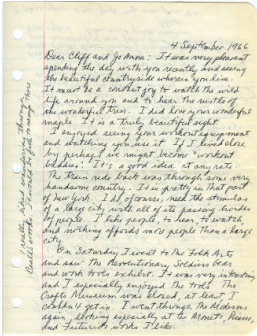 4 September 1966
Dear Cliff and Jo Anna: It was very pleasant
spending the day with you recently and seeing
the beautiful countryside wherein you live.
It must be a constant joy to watch the wild
life around you and to hear the rustle of
the wonderful trees. I did love your wonderful
maple. It is a truly beautiful sight.
I enjoyed seeing your workout equipment
and watching you use it. If I lived close
by perhaps we might become "workout
buddies". It's a good idea at any rate.
The train ride back was through some very
handsome country. It is pretty in that part
of New York. I do, of course, need the stimulus
of a large city with all of its passing
of people. I like people, to hear, to watch,
and nothing affords more people than a large
city.
On Saturday I went to the Folk Art
and saw the Revolutionary Soldiers
and work tools exhibit. It was very interesting
and I especially enjoyed the tools. The
Crafts Museum was closed, at least I
couldn't get in. I went through the Moderns
again, looking especially at the Monets,
and Futurist works I like.
I really